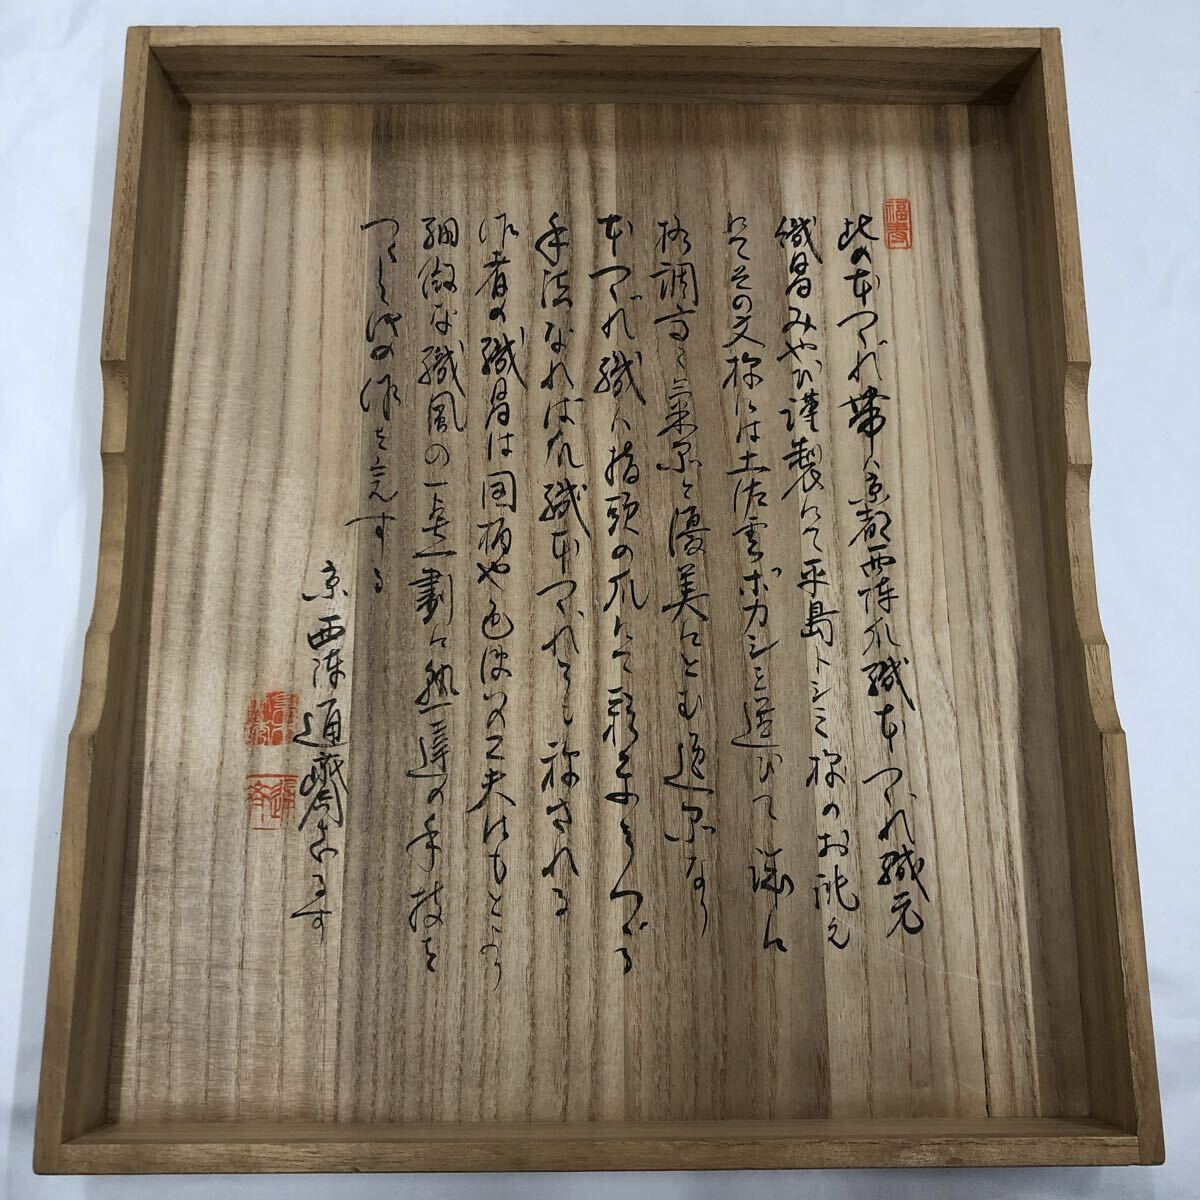 福寿
此の本つづれ帯は京都西陣爪織本つづれ織元
織昌みやび謹製にて平島トシミ様のお誂え
にてその文様には土佐雲ボカシを選びて誠に
格調高く気品と優美にとむ逸品なり
本つづれ織は指頭の爪にて彩糸をつづる
手法なれば爪織本つづれとも称される
作者の織昌は図柄や色使いの工夫はもとより
細微な織風の一点一劃に熟達の手技を
つくし此の作を完する
京西陣 通斎しるす